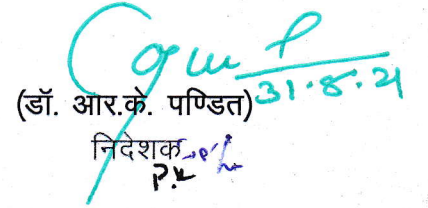 31.8.21
(डॉ. आर.के. पण्डित)
निदेशक